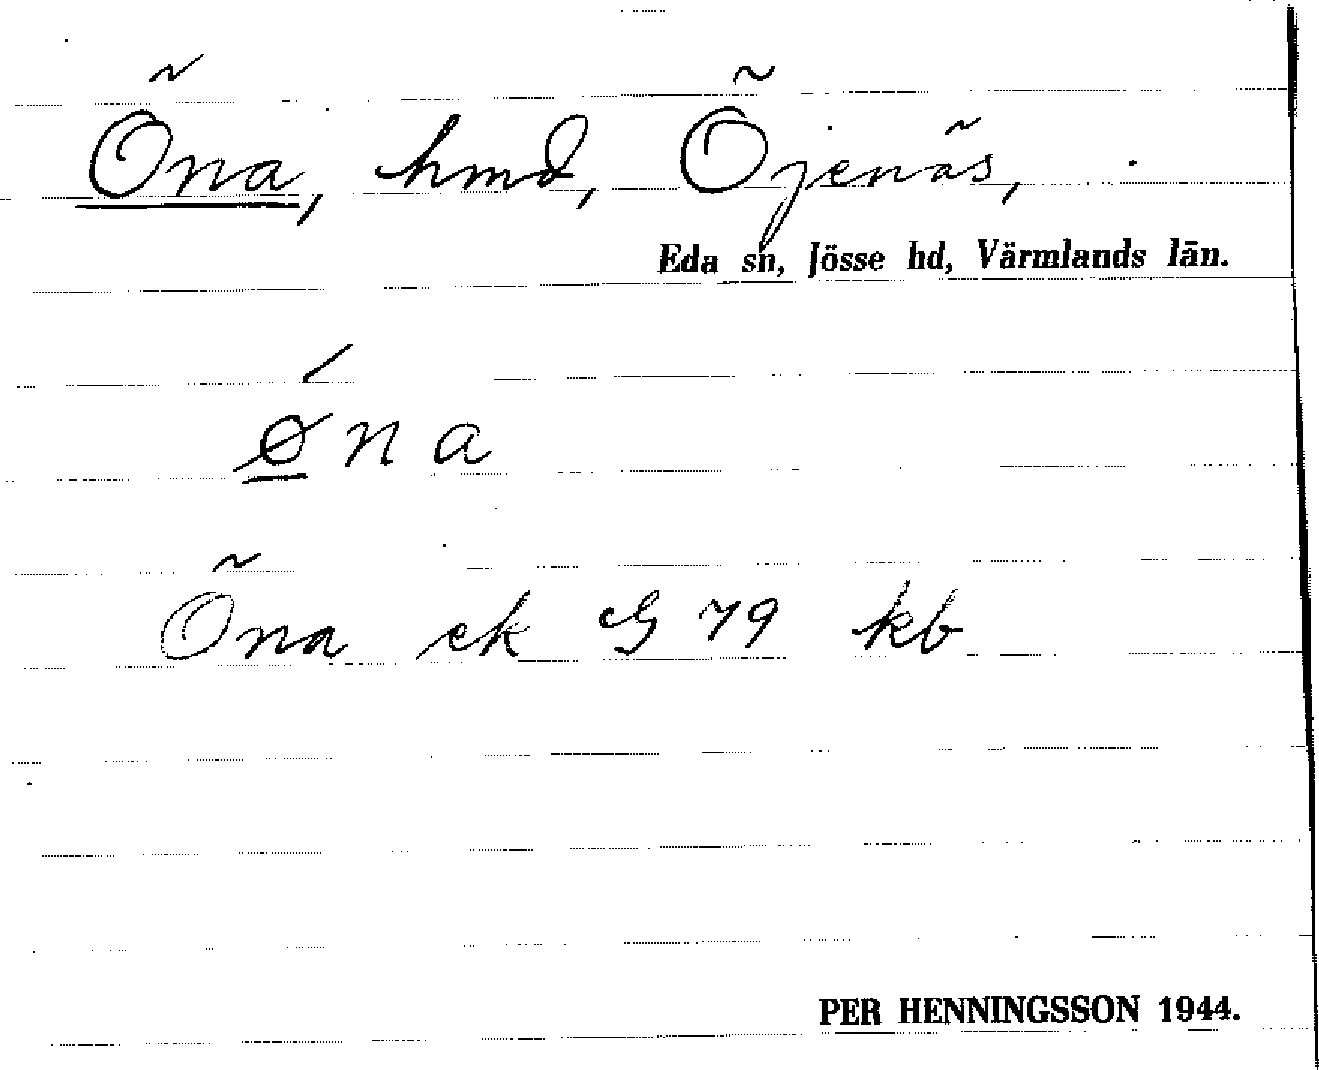 Öna, hmd, Öjenäs,
Eda sn, Jösse hd, Värmlands län.
ǿna
Öna ek G 79 kb
PER HENNINGSSON 1944.